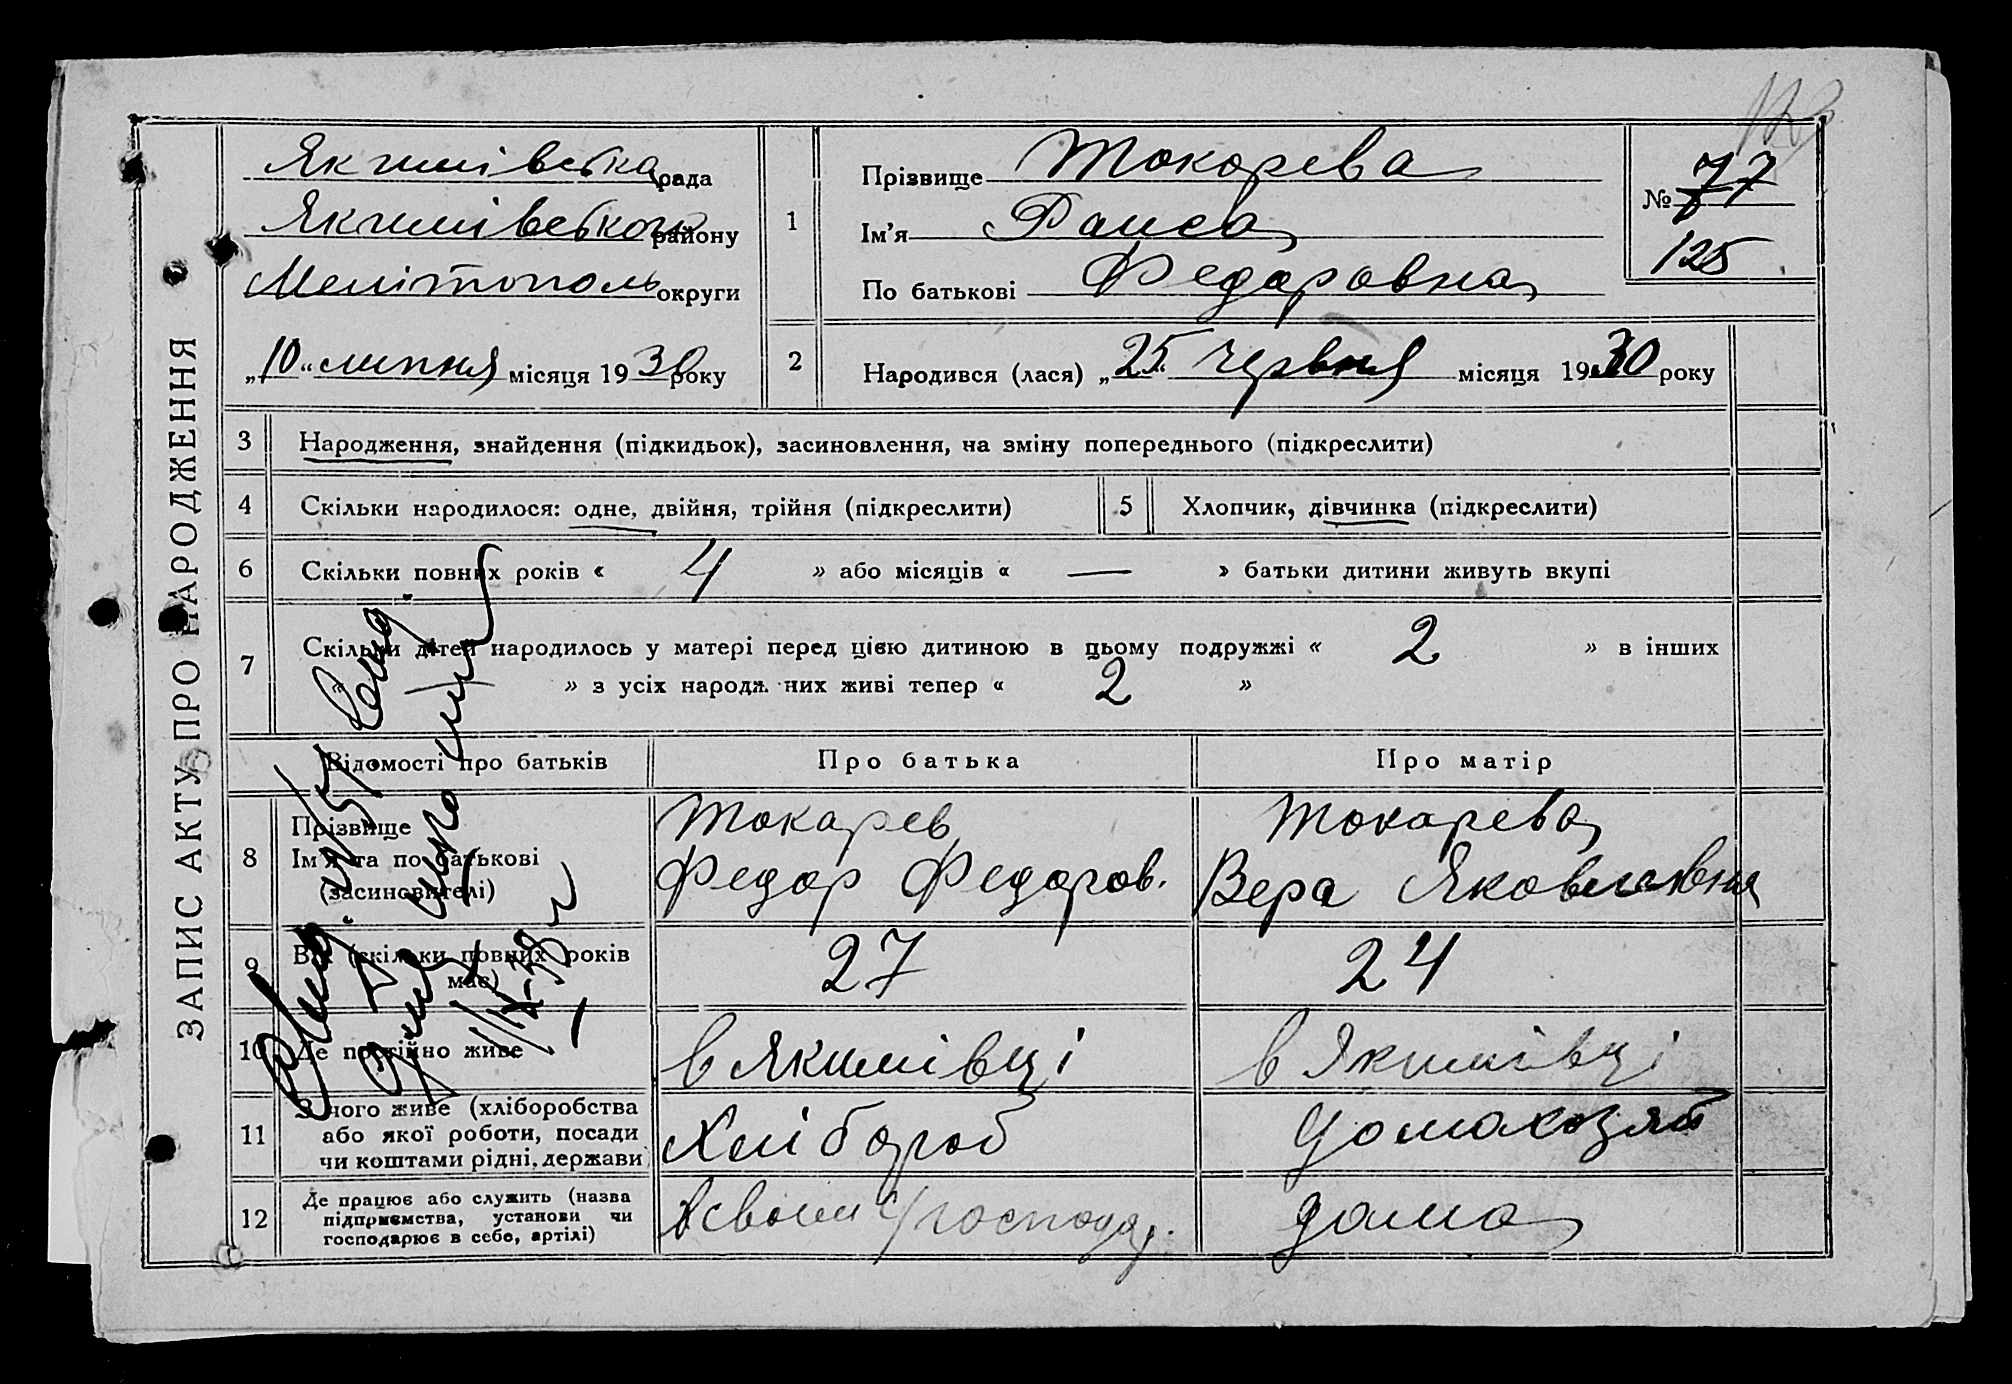 ЗАПИС АКТУ ПРО НАРОДЖЕННЯ
Якимівська рада
Якимівського району
Мелітополь округи
„10“ липня місяця 1930 року
1
Прізвище Токарева
Ім’я Раиса
По батькові Федоровна
№ 77
125
2 Народився (лася) „25“ червня місяця 1930 року
3 Народження, знайдення (підкидьок), засиновлення, на зміну попереднього (підкреслити)
4 Скільки народилося: одне, двійня, трійня (підкреслити) 5 Хлопчик, дівчинка (підкреслити)
6 Скільки повних років « 4 » або місяців « — » батьки дитини живуть вкупі
7 Скільки дітей народилось у матері перед цією дитиною в цьому подружжі « 2 » в інших
« » з усіх народж них живі тепер « 2 »
Відомості про батьків Про батька Про матір
8 Прізвище Токарев Токарева
Ім’я та по батькові Федор Федоров. Вера Яковлевна
(засиновителі)
9 Вік (скільки повних років має) 27 24
10 Де постійно живе в Якимівці в Якимівці
11 З чого живе (хліборобства
або якої роботи, посади
чи коштами рідні, держави Хлібороб домохозяй
12 Де працює або служить (назва
підприємства, установи чи
господарює в себе, артілі) в своєму господар. дома